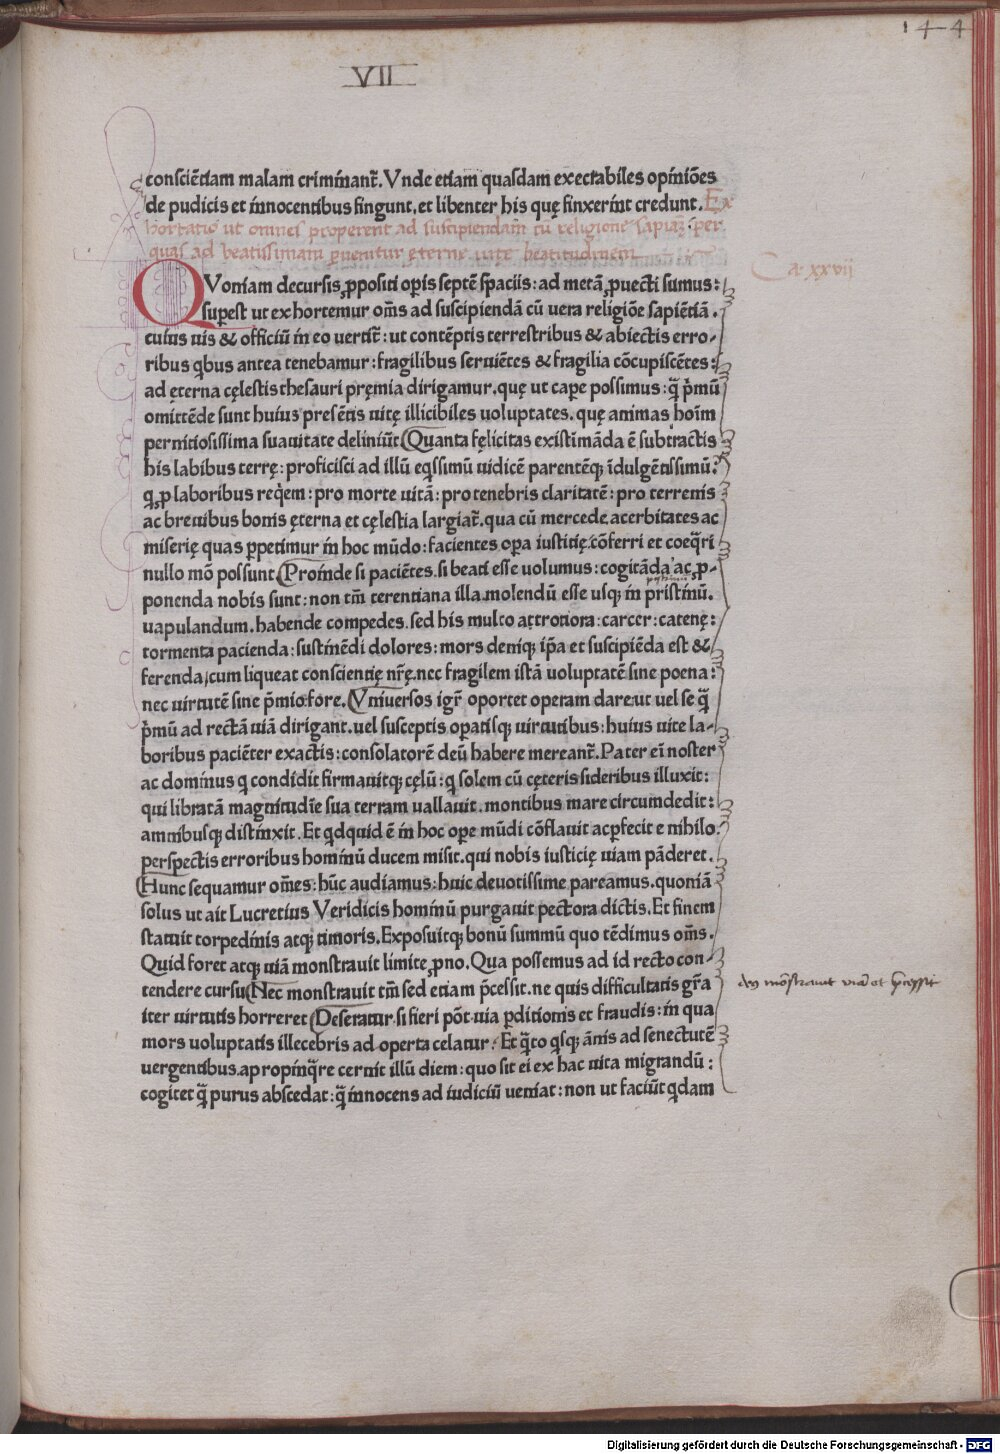 144
VII
consciētiam malam criminant᷑. Vnde etiam quasdam execrabiles opiniões
de pudicis et innocentibus fingunt, et libenter his quę finxerint credunt. Ex
hortatio ut omnes properent ad suscipiendam cū religionē sapiaz̄ per
quas ad beatissimam ꝑuenitur eterne uite beatitudinem
Cap xxvii
QVoniam decursis ꝓpositi opis septē spaciis: ad metā ꝓuecti sumus:
suꝑest ut exhortemur om̄s ad suscipiendā cū vera religiōe sapiētiā.
cuius uis & officiū in eo uertit᷑: ut contēptis terrestribus & abiectis erro-
ribus qbus antea tenebamur: fragilibus seruiētes & fragilia cōcupiscētes:
ad ęterna cęlestis thesauri pręmia dirigamur. quę ut capē possimus: q̄ p̄mū
omittēde sunt huius presētis uitę illicibiles uoluptates. quę animas hoīm
pernitiosissima suauitate deliniūt. Quanta fęlicitas existimāda ē subtractis
his labibus terrę: proficisci ad illū eqssimū iudicē parentēqꝫ īdulgētissimū:
q ꝓ laboribus reqem: pro morte uitā: pro tenebris claritatē: pro terrenis
ac breuibus bonis ęterna et cęlestia largiat᷑. qua cū mercede acerbitates ac
miserię quas ꝑpetimur in hoc mūdo: facientes opa iustitię. cōferri et coeq̄ri
nullo mō possunt. Proinde si paciētes. si beati esse uolumus: cogitāda ac ꝓ-
ponenda nobis sunt: non tm̄ terentiana illa. molendū esse usqꝫ in pristinū.
uapulandum. habende compedes. sed his multo attrotiora: carcer: catenę:
tormenta pacienda: sustinēdi dolores: mors deniqꝫ ip̄a et suscipiēda est &
ferenda, cum liqueat conscientię nr̄ę. nec fragilem istā uoluptatē sine poena:
nec uirtutē sine p̄mio fore. Vniuersos igr̄ oportet operam dare ut uel se q̄
p̄mū ad rectā uiā dirigant. uel susceptis opatisqꝫ uirtutibus: huius uite la-
boribus paciēter exactis: consolatorē deū habere mereant᷑. Pater eū noster
ac dominus q condidit firmauitqꝫ cęlū: q solem cū cęteris sideribus illuxit:
qui libratā magnitudīe sua terram uallauit. montibus mare circumdedit:
amnibusqꝫ distinxit. Et qdquid ē in hoc opē mūdi cōflauit ac ꝑfecit e nihilo.
perspectis erroribus hominū ducem misit. qui nobis iusticię uiam pāderet.
Hunc sequamur om̄es: hūc audiamus: huic deuotissime pareamus. quoniā
solus ut ait Lucretius Veridicis hominū purgauit pectora dictis. Et finem
statuit torpedinis atqꝫ timoris. Exposuitqꝫ bonū summū quo tēdimus om̄s.
Quid foret atqꝫ uiā monstrauit limite ꝓno. Qua possemus ad id recto con-
tendere cursu. Nec monstrauit tm̄ sed etiam p̄cessit. ne quis difficultatis gr̄a
iter uirtutis horreret. Deseratur si fieri pōt uia ꝑditionis et fraudis: in qua
mors uoluptatis illecebris ad operta celatur. Et q̄to qsqꝫ ānis ad senectutē
uergentibus apropinq̄re cernit illū diem: quo sit ei ex hac uita migrandū:
cogitet q̄ purus abscedat: q̄ innocens ad iudiciū ueniat: non ut faciūt qdam
Digitalisierung gefördert durch die Deutsche Forschungsgemeinschaft - DFG